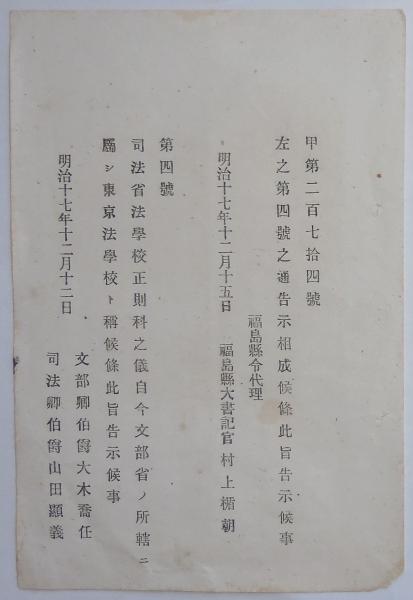 甲第二百七拾四號
左之第四號之通告示相成候條此旨告示候事
福島縣令代理
明治十七年十二月十五日　福島縣大書記官　村上楯朝
第四號
司法省法學校正則科之儀自今文部省ノ所轄ニ
屬シ東京法學校ト稱候條此旨告示候事
明治十七年十二月十二日
文部卿伯爵大木喬任
司法卿伯爵山田顯義